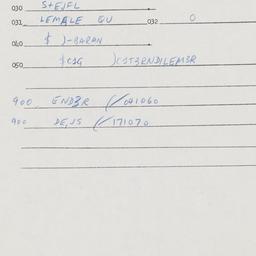 030 STEJFL
031 LEMALE GU 032 0
040 $ )-BARAN
050 $CSG )CST3RNDILEM3R
900 END3R (/041060
900 DE,JS (/171070